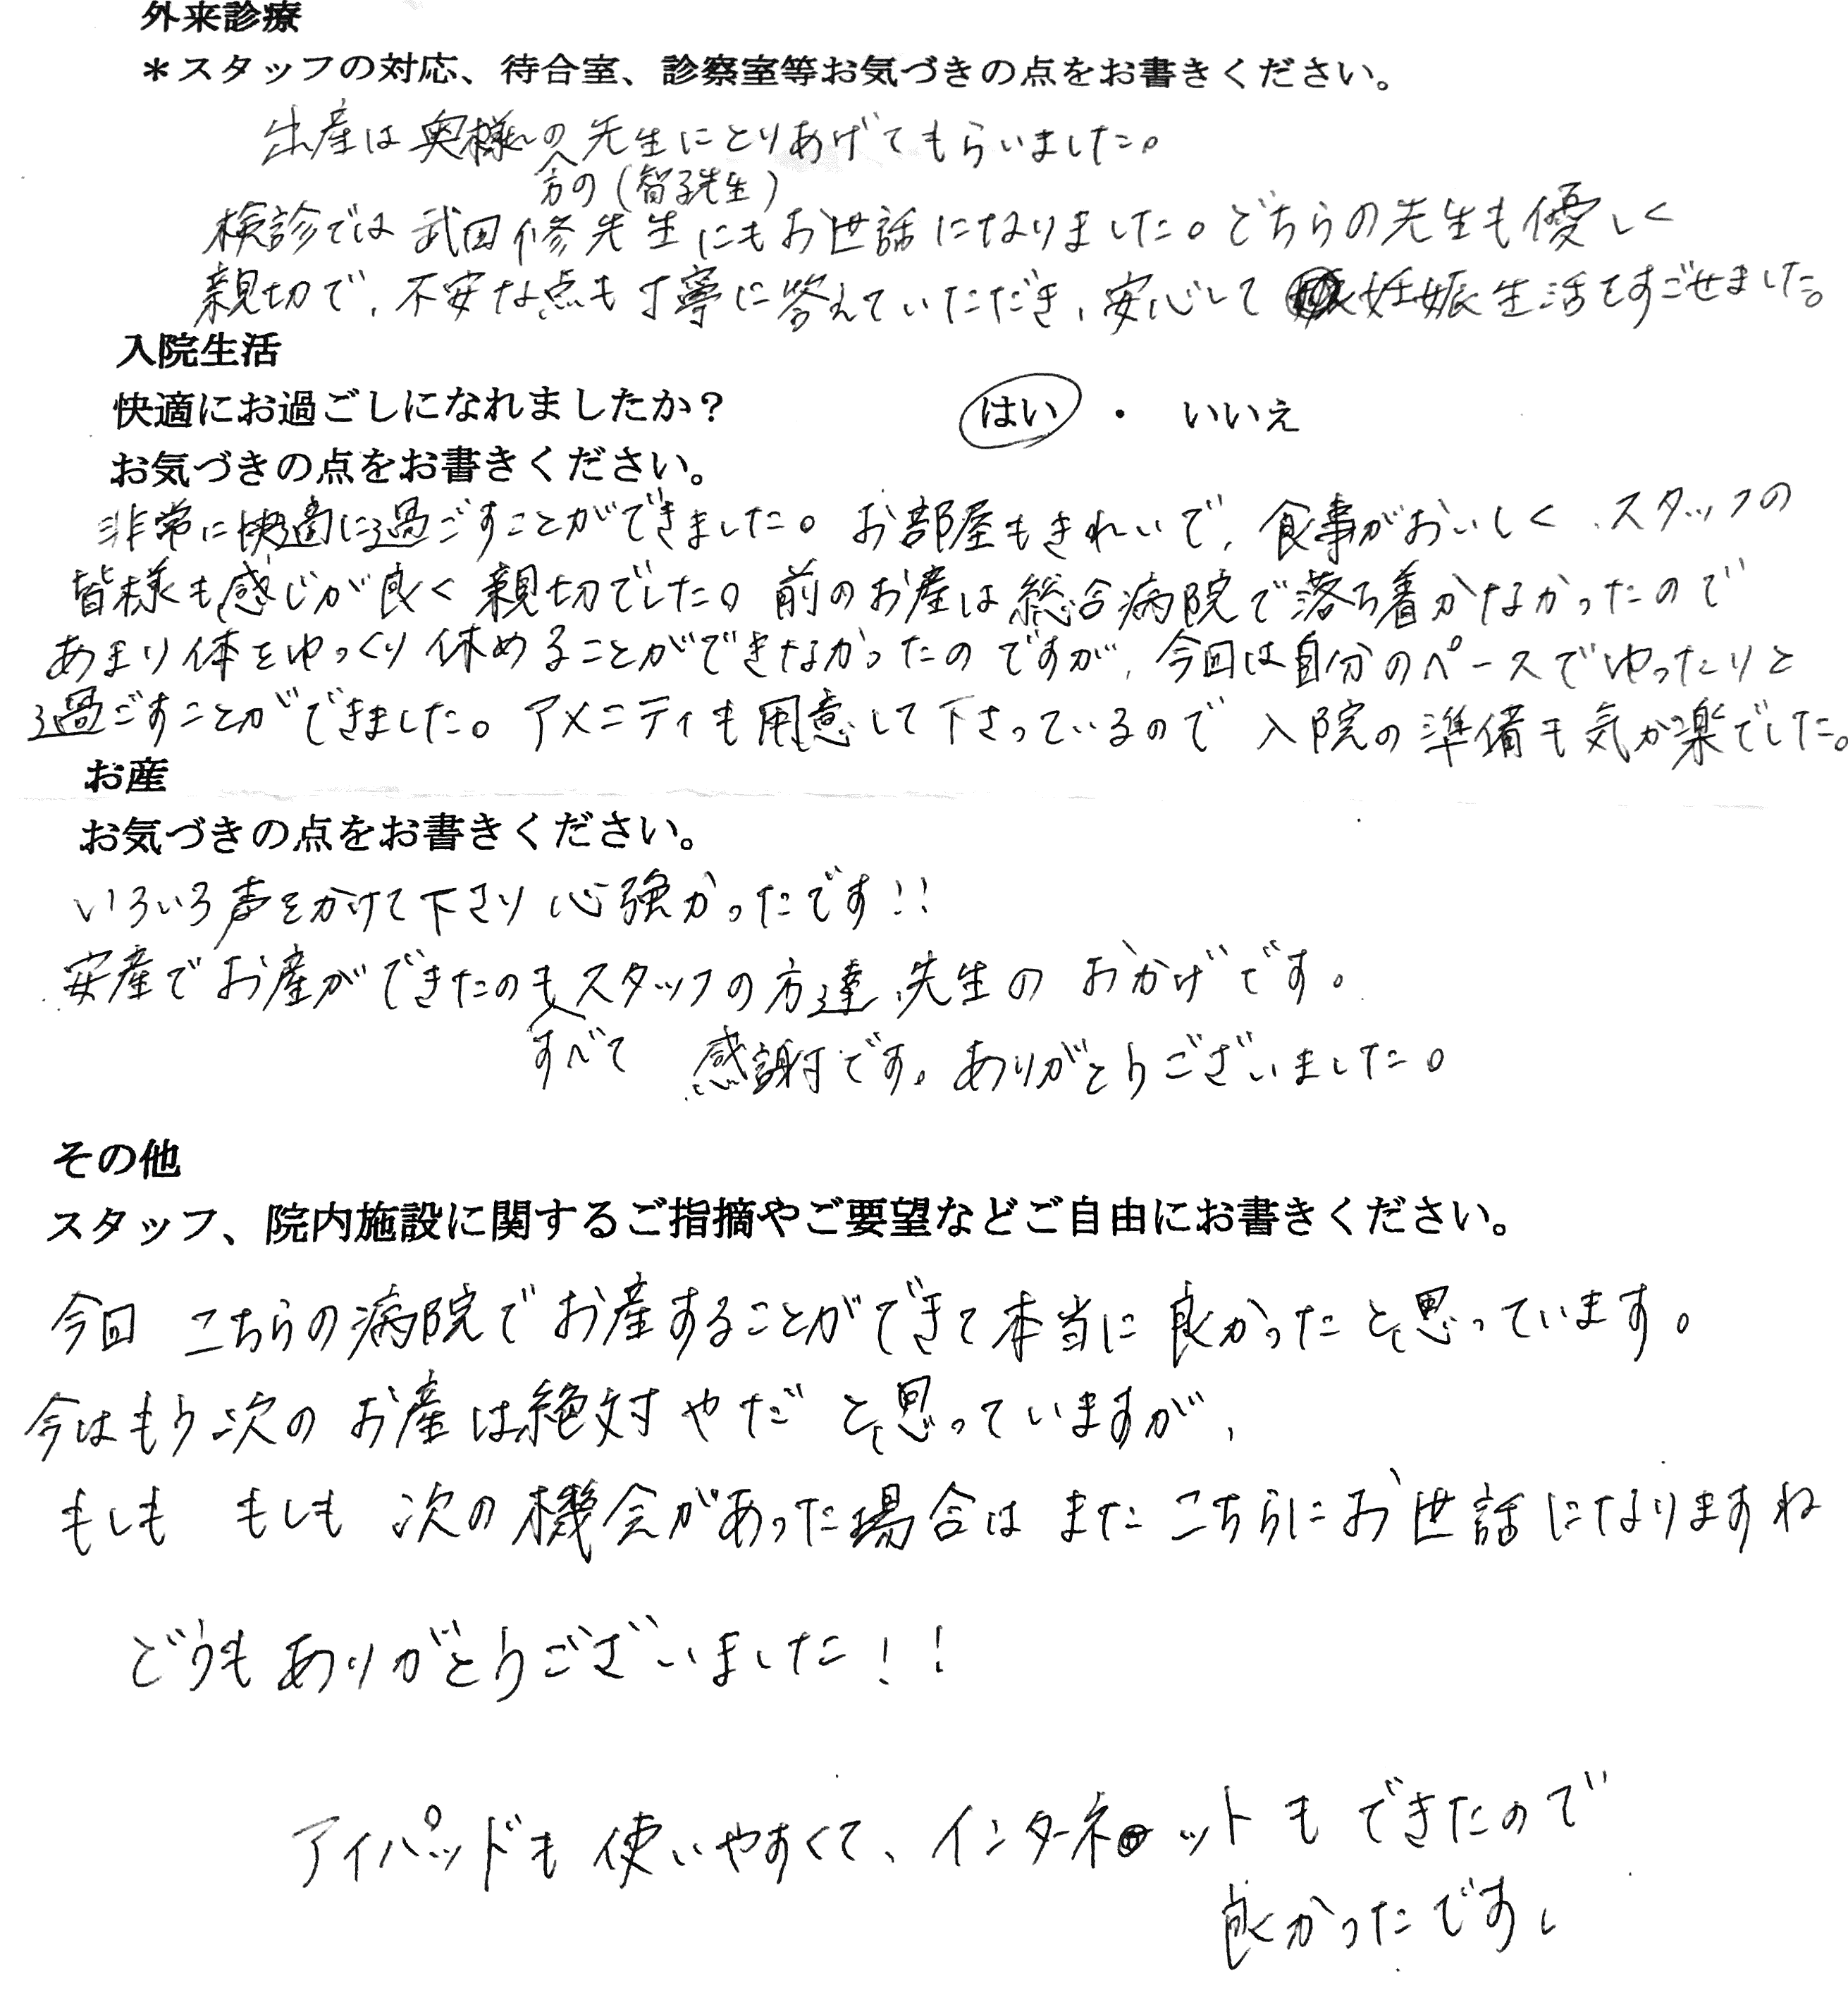 外来診療
*スタッフの対応、待合室、診察室等お気づきの点をお書きください。
出産は奥様の先生にとりあげてもらいました。
方の(智子先生)
検診では武田修先生にもお世話になりました。どちらの先生も優しく
親切で、不安な点も丁寧に答えていただき、安心して妊娠生活をすごせました。
入院生活
快適にお過ごしになれましたか? はい ・ いいえ
お気づきの点をお書きください。
非常に快適に過ごすことができました。お部屋もきれいで、食事がおいしく、スタッフの
皆様も感じが良く親切でした。前のお産は総合病院で落ち着かなかったので
あまり体をゆっくり休めることができなかったのですが、今回は自分のペースでゆったりと
過ごすことができました。アメニティも用意して下さっているので入院の準備も気が楽でした。
お産
お気づきの点をお書きください。
いろいろ声をかけて下さり心強かったです!!
安産でお産ができたのもスタッフの方達、先生のおかげです。
すべて 感謝です。ありがとうございました。
その他
スタッフ、院内施設に関するご指摘やご要望などご自由にお書きください。
今回 こちらの病院でお産することができて本当に良かったと思っています。
今はもう次のお産は絶対やだと思っていますが、
もしも もしも 次の機会があった場合はまたこちらにお世話になりますね
どうもありがとうございました!!
アイパッドも使いやすくて、インターネットもできたので
良かったです。